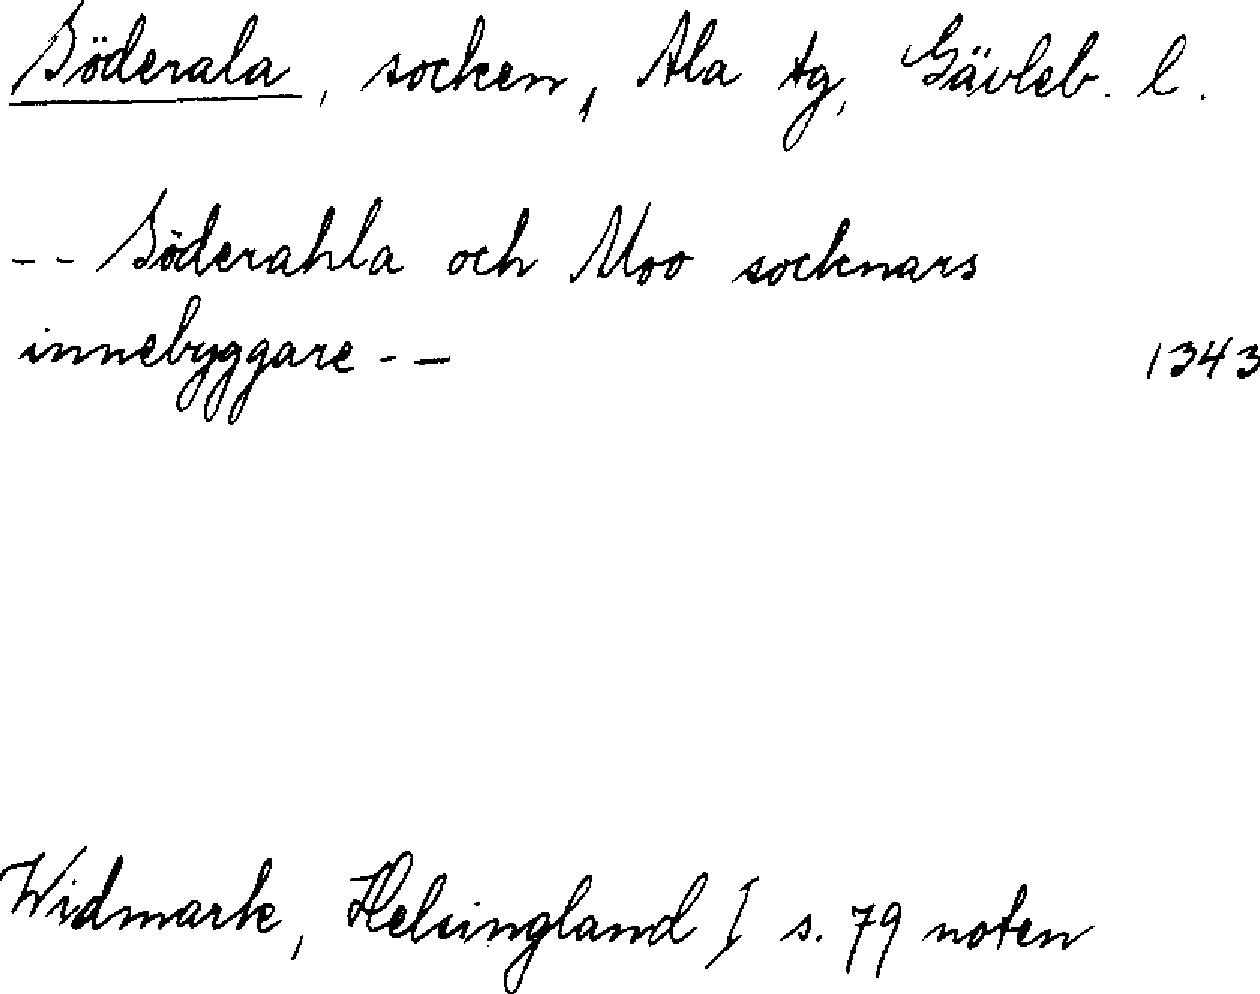 Söderala, socken, Ala tg, Gävleb. l.
-- Söderahla och Moo socknars
innebyggare -- 1343
Widmark, Helsingland I s. 79 noten